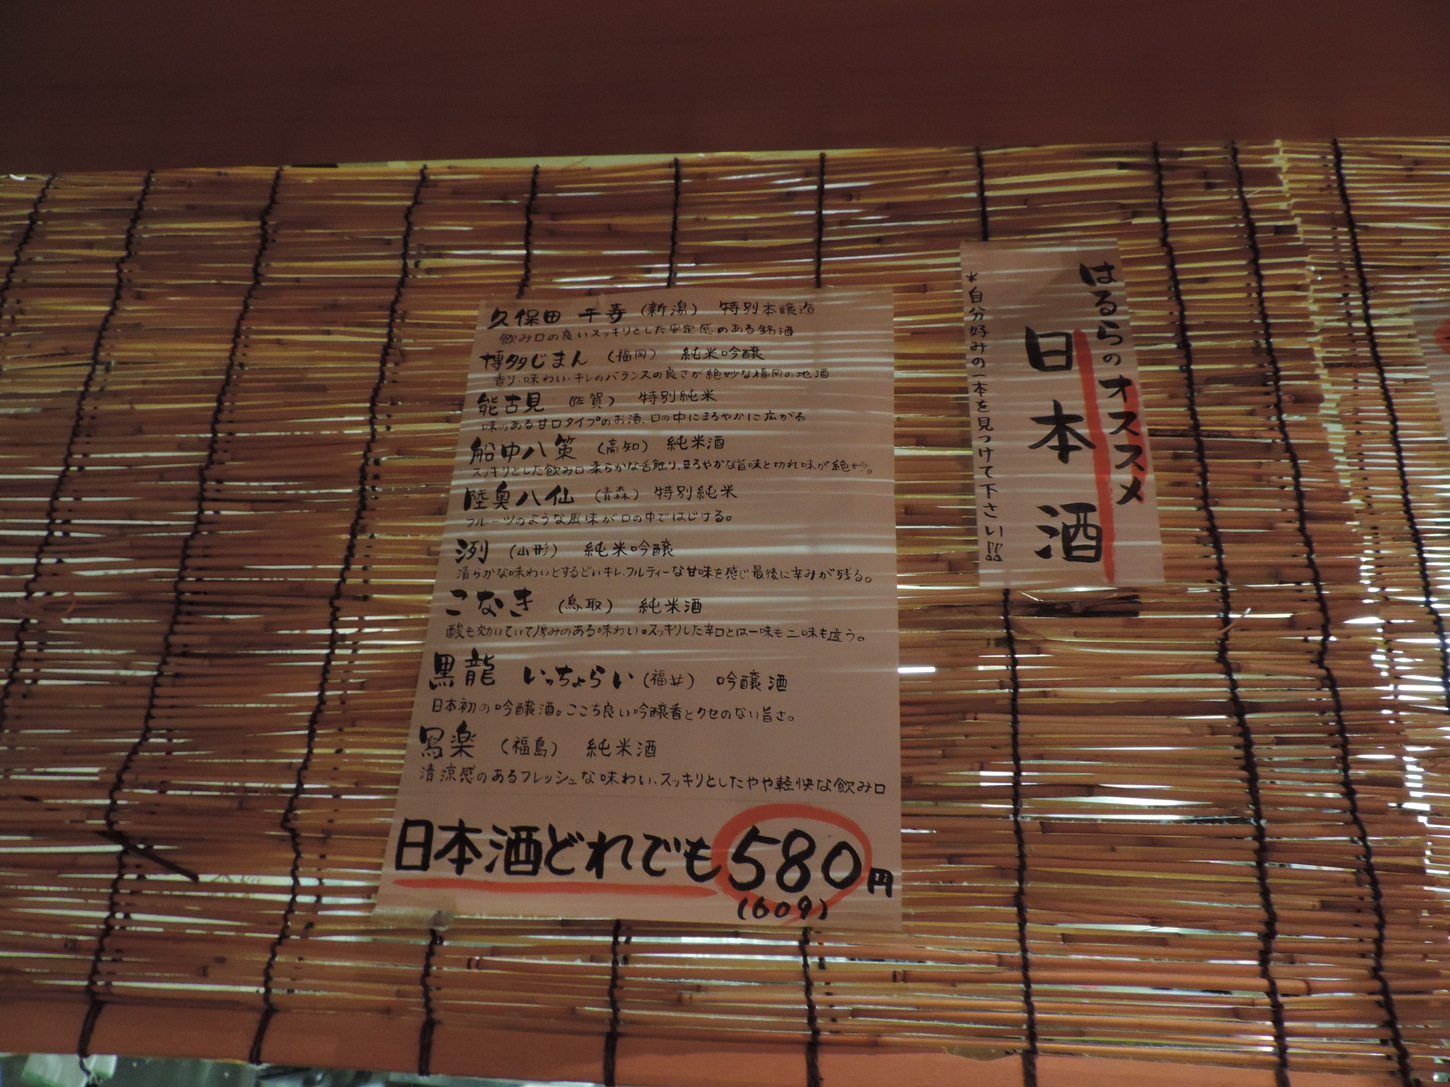 久保田 千寿 (新潟) 特別本醸造
飲み口の良いスッキリとした安定感のある銘酒
博多じまん (福岡) 純米吟醸
香り、味わい、キレのバランスの良さが絶妙な福岡の地酒
能古見 (佐賀) 特別純米
味のある甘口タイプのお酒。口の中にまろやかに広がる
船中八策 (高知) 純米酒
スッキリとした飲み口、柔らかな舌触り、まろやかな旨味と切れ味が絶妙。
陸奥八仙 (青森) 特別純米
フルーツのような風味が口の中ではじける。
洌 (山形) 純米吟醸
清らかな味わいとするどいキレ、フルティーな甘味を感じ最後に辛みが残る。
こなき (鳥取) 純米酒
酸も効いていて厚みのある味わい。スッキリした辛口とは一味も二味も違う。
黒龍 いっちょらい (福井) 吟醸酒
日本初の吟醸酒。ここち良い吟醸香とクセのない旨さ。
冩楽 (福島) 純米酒
清涼感のあるフレッシュな味わい、スッキリとしたやや軽快な飲み口
日本酒どれでも580円
(609)
はるらのオススメ
日本酒
*自分好みの一本を見つけて下さい!!